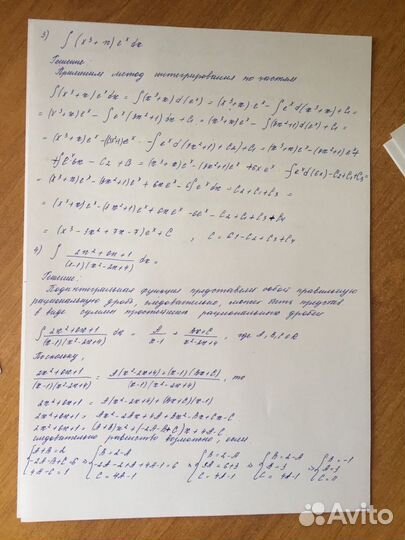 3) ∫ (x³ + x) eˣ dx
Решение:
Применим метод интегрирования по частям
∫(x³+x)eˣdx = ∫(x³+x)d(eˣ) = (x³+x)eˣ - ∫eˣd(x³+x)+C₁ =
= (x³+x)eˣ - ∫eˣ(3x²+1)dx + C₁ = (x³+x)eˣ - ∫(3x²+1)d(eˣ)+C₁ =
= (x³+x)eˣ-
= (x³+x)eˣ-(3x²+1)eˣ + 6xeˣ - 6∫eˣdx - C₂+C₁+C₃ =
= (x³+x)eˣ-(3x²+1)eˣ+6xeˣ -6eˣ - C₂+C₁+C₃+C₄
= (x³ - 3x² + 7x - 7)eˣ + C , C = C1 - C2 + C3 + C4
4) ∫ (2x²+6x+1)/((x-1)(x²-2x+4)) dx =
Решение:
Подинтегральная функция представляет собой правильную
рациональную дробь, следовательно, может быть представ
в виде суммы простейших рациональных дробей
∫ (2x²+6x+1)/((x-1)(x²-2x+4)) dx = A/(x-1) + (Bx+C)/(x²-2x+4), где A, B, C
Поскольку,
(2x²+6x+1)/((x-1)(x²-2x+4)) = (A(x²-2x+4)+(x-1)(Bx+C))/((x-1)(x²-2x+4)), то
2x²+6x+1 = A(x²-2x+4)+(Bx+C)(x-1)
2x²+6x+1 = Ax²-2Ax+4A+Bx²-Bx+Cx-C
2x²+6x+1 = (A+B)x²+(-2A-B+C)x+4A-C
следовательно равенство возможно, если
{A+B=2 {B=2-A {B=2-A {B=2-A
{-2A-B+C=6 ⇒ {-2A-2+A+4A-1=6 ⇒ {3A=6+3 ⇒ {A=3 ⇒
{4A-C=1 {C=4A-1 {C=4A-1 {C=4A-1
Avito